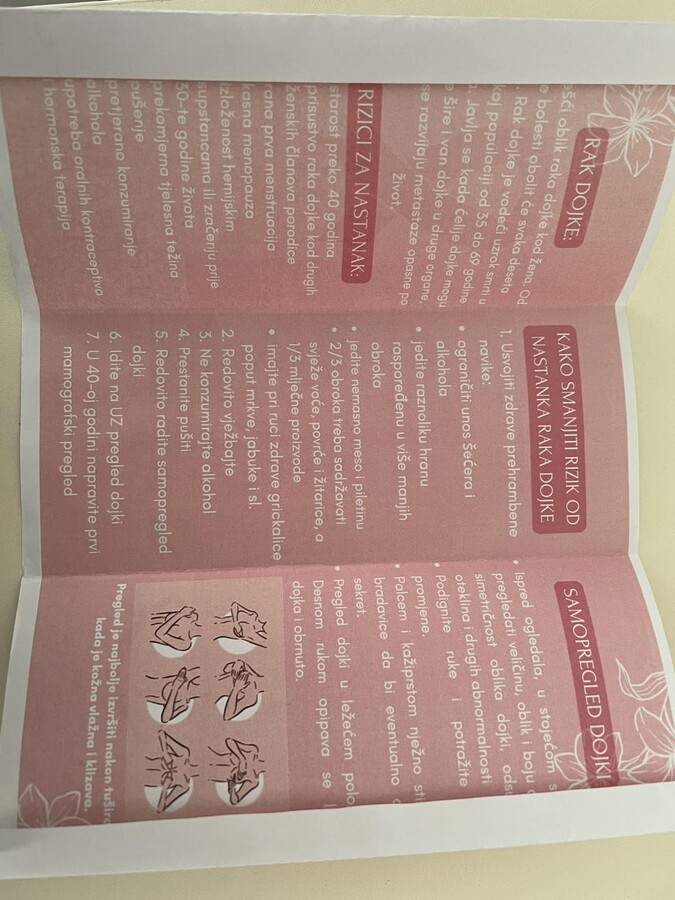 RAK DOJKE:
ešći oblik raka dojke kod žena. Od
e bolesti obolit će svaka deseta
. Rak dojke je vodeći uzrok smrti u
koj populaciji od 35 do 69 godine
. Javlja se kada ćelije dojke mogu
e šire i van dojke u druge organe,
se razvijaju metastaze opasne po
život.
RIZICI ZA NASTANAK:
starost preko 40 godina
prisustvo raka dojke kod drugih
ženskih članova porodice
rana prva menstruacija
kasna menopauza
izloženost hemijskim
supstancama ili zračenju prije
30-te godine života
prekomjerna tjelesna težina
pušenje
pretjerano konzumiranje
alkohola
upotreba oralnih kontraceptiva
i hormonska terapija
KAKO SMANJITI RIZIK OD
NASTANKA RAKA DOJKE
1. Usvojiti zdrave prehrambene
navike:
• ograničiti unos šećera i
alkohola
• jedite raznoliku hranu
raspoređenu u više manjih
obroka
• jedite nemasno meso i piletinu
• 2/3 obroka treba sadržavati
svježe voće, povrće i žitarice, a
1/3 mliječne proizvode
• imajte pri ruci zdrave grickalice
poput mrkve, jabuke i sl.
2. Redovito vježbajte
3. Ne konzumirajte alkohol
4. Prestanite pušiti
5. Redovito radite samopregled
dojki
6. Idite na UZ pregled dojki
7. U 40-oj godini napravite prvi
mamografski pregled
SAMOPREGLED DOJKI
• Ispred ogledala, u stojećem s
pregledati veličinu, oblik i boju d
simetričnost oblika dojki, odsu
oteklina i drugih abnormalnosti
• Podignite ruke i potražite
promjene.
• Palcem i kažiprstom nježno sti
bradovice da bi eventualno
sekret.
• Pregled dojki u ležećem polo
Desnom rukom opipava se l
dojka i obrnuto.
Pregled je najbolje izvršiti nakon tušira
kada je kožna vlažna i klizava.